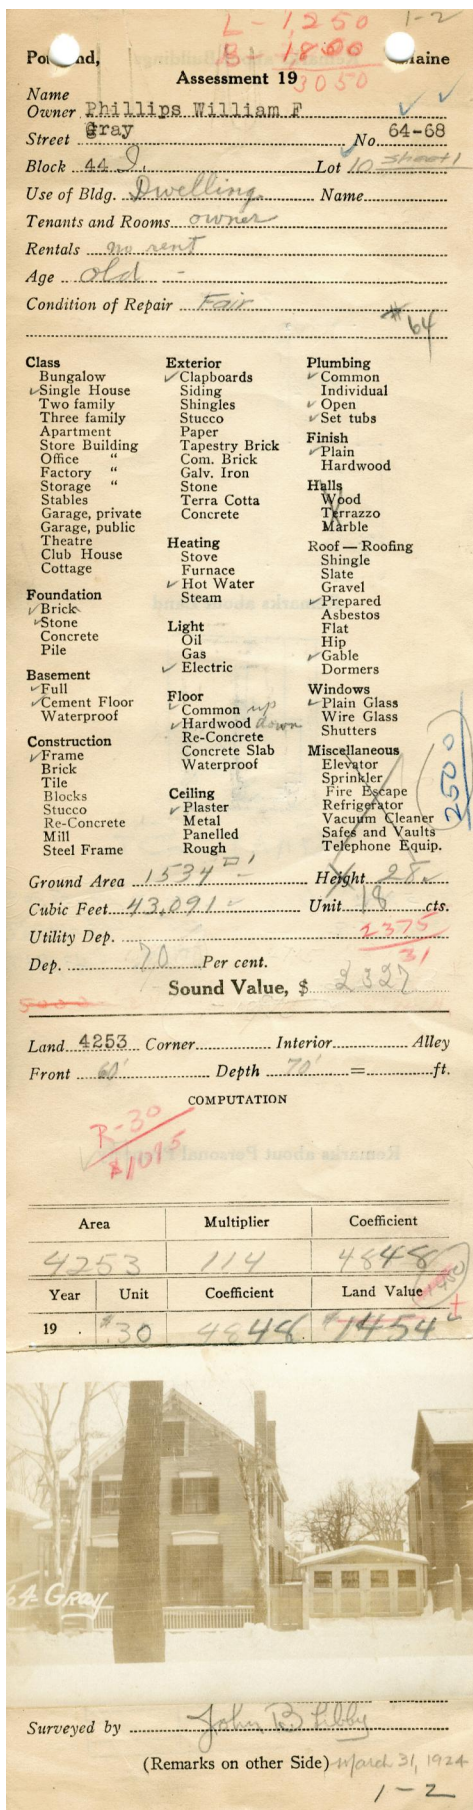 L - 1,250 1-2
B - 1800
3050
Portland, Maine
Assessment 19
Name
Owner Phillips William F
Street Gray No 64-68
Block 44 I. Lot 10 Sheet 1
Use of Bldg. Dwelling. Name
Tenants and Rooms owner
Rentals no rent
Age old -
Condition of Repair Fair
#64
Class
Bungalow
✓Single House
Two family
Three family
Apartment
Store Building
Office "
Factory "
Storage "
Stables
Garage, private
Garage, public
Theatre
Club House
Cottage
Foundation
✓Brick
✓Stone
Concrete
Pile
Basement
✓Full
✓Cement Floor
Waterproof
Construction
✓Frame
Brick
Tile
Blocks
Stucco
Re-Concrete
Mill
Steel Frame
Exterior
✓Clapboards
Siding
Shingles
Stucco
Paper
Tapestry Brick
Com. Brick
Galv. Iron
Stone
Terra Cotta
Concrete
Heating
Stove
Furnace
✓Hot Water
Steam
Light
Oil
Gas
✓Electric
Floor
✓Common up
✓Hardwood down
Re-Concrete
Concrete Slab
Waterproof
Ceiling
✓Plaster
Metal
Panelled
Rough
Plumbing
✓Common
Individual
✓Open
✓Set tubs
Finish
✓Plain
Hardwood
Halls
Wood
Terrazzo
Marble
Roof — Roofing
Shingle
Slate
Gravel
✓Prepared
Asbestos
Flat
Hip
✓Gable
Dormers
Windows
✓Plain Glass
Wire Glass
Shutters
Miscellaneous
Elevator
Sprinkler
Fire Escape
Refrigerator
Vacuum Cleaner
Safes and Vaults
Telephone Equip.
2500
Ground Area 1534 □' Height 28
Cubic Feet 43,091 Unit 18 cts.
Utility Dep. 2375
31
Dep. 70 Per cent.
Sound Value, $ 2327
Land 4253 Corner Interior Alley
Front 60' Depth 70' = ft.
COMPUTATION
R-30
$1095
Area Multiplier Coefficient
4253 114 4848
Year Unit Coefficient Land Value
19 . $.30 4848 $1454
64-Gray
Surveyed by John B. Libby
(Remarks on other Side) March 31, 1924
1-2